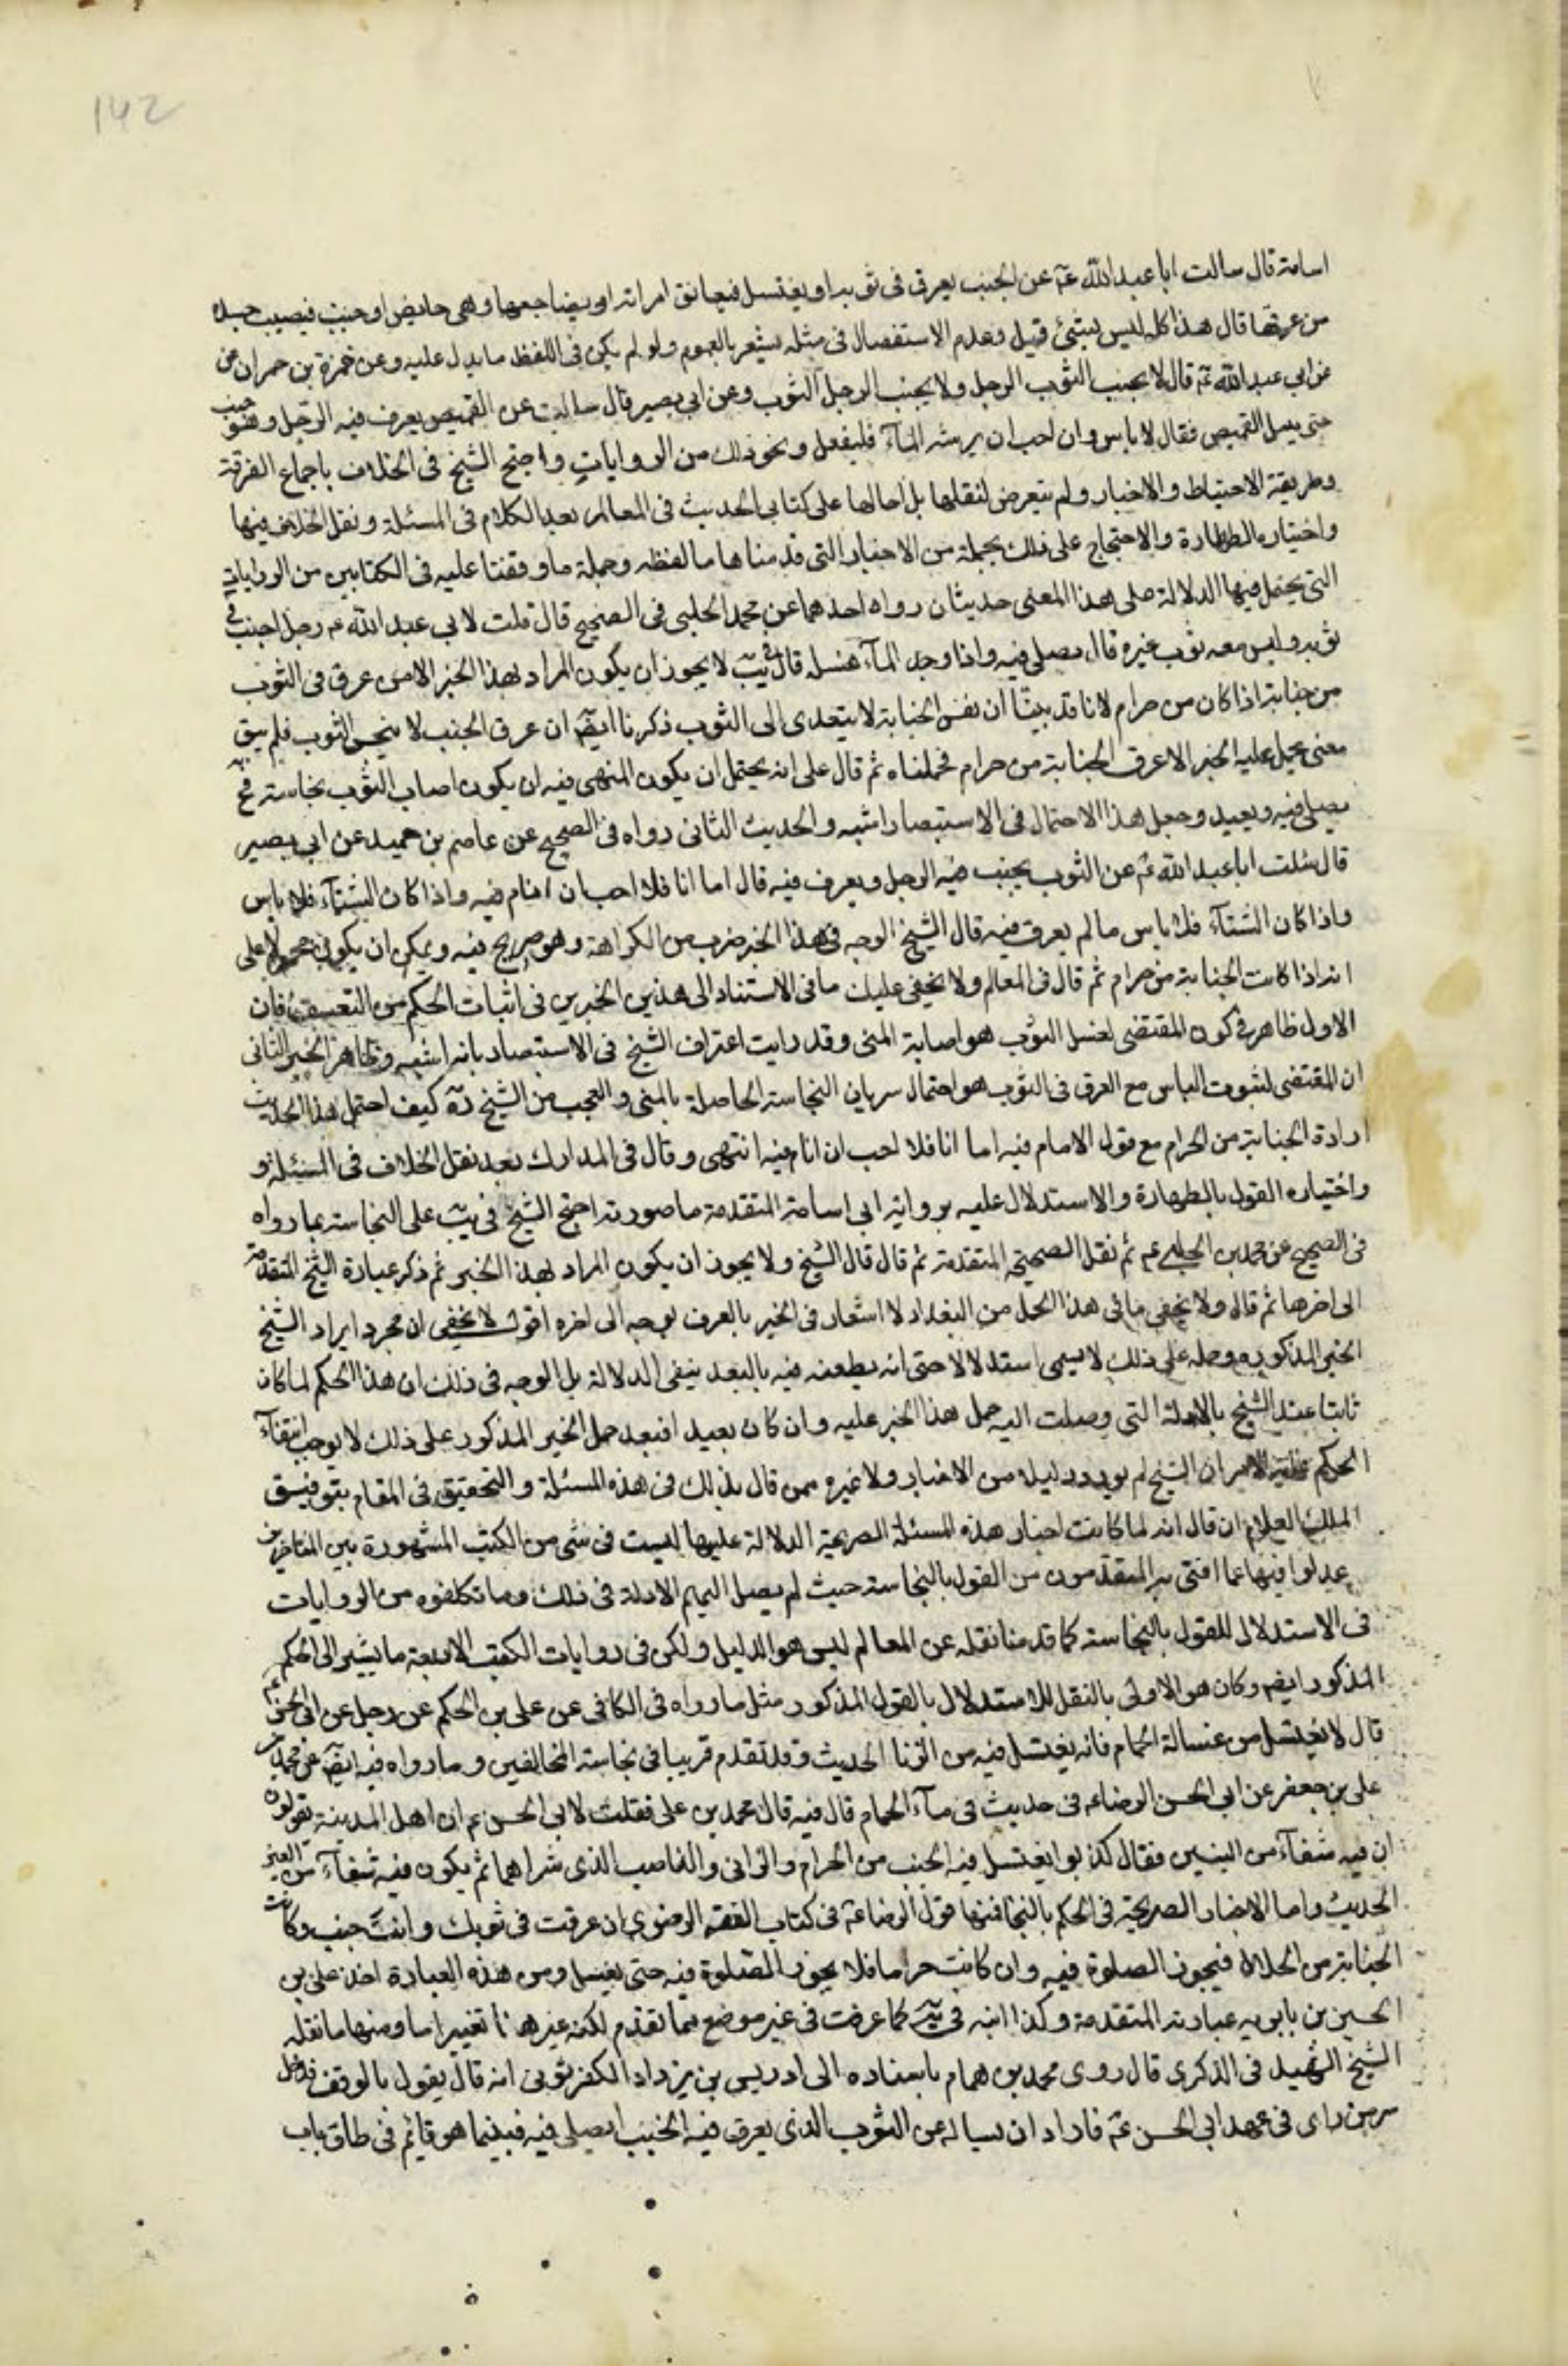 142
اسامة قال سالت ابا عبد الله عم عن الجنب يعرق فى ثوبه او يغتسل فيعانق امراته او يضاجعها وهى حايض او جنب فيصيب جسده
من عرقها قال هذا كله ليس بشئ قيل وعدم الاستفصال فى مثله يشعر بالعموم ولو لم يكن فى اللفظ ما يدل عليه وعن حمزة بن حمران عن
عن ابى عبد الله عم قال لا يجنب الثوب الرجل ولا يجنب الرجل الثوب وعن ابى بصير قال سالت عن القميص يعرق فيه الرجل وهو جنب
حتى يبتل القميص فقال لا باس وان احب ان يرشه بالمآء فليفعل ونحو ذلك من الروايات واحتج الشيخ فى الخلاف باجماع الفرقة
وطريقة الاحتياط والاخبار ولم يتعرض لنقلها بل احالها على كتابى الحديث فى المعالم بعد الكلام فى المسئلة ونقل الخلاف فيها
واختياره الطهارة والاحتجاج على ذلك بجملة من الاخبار التى قدمناها ما لفظه وجملة ما وقفنا عليه فى الكتابين من الروايات
التى يحتمل فيها الدلالة على هذا المعنى حديثان رواه احدهما عن محمد الحلبى فى الصحيح قال قلت لابى عبد الله عم رجل اجنب فى
ثوبه وليس معه ثوب غيره قال يصلى فيه واذا وجد المآء غسله قال فى يب لا يجوز ان يكون المراد بهذا الخبر الا من عرق فى الثوب
من جنابة اذا كان من حرام لانا قد بينا ان نفس الجنابة لا يتعدى الى الثوب ذكرنا ايضا ان عرق الجنب لا ينجس الثوب فلم يبق
معنى يحمل عليه الخبر الا عرق الجنابة من حرام فحملناه ثم قال على انه يحتمل ان يكون المنهى فيه ان يكون اصاب الثوب نجاسة فح
يصلى فيه ويعيد وجعل هذا الاحتمال فى الاستبصار اشبه والحديث الثانى رواه فى الصحيح عن عاصم بن حميد عن ابى بصير
قال سئلت ابا عبد الله عم عن الثوب يجنب فيه الرجل ويعرق فيه قال اما انا فلا احب ان انام فيه واذا كان الشتآء فلا باس
واذا كان الشتآء فلا باس ما لم يعرق فيه قال الشيخ الوجه فى هذا الخبر ضرب من الكراهة وهو صريح فيه ويمكن ان يكون محمولا على
انه اذا كانت الجنابة من حرام ثم قال فى المعالم ولا يخفى عليك ما فى الاستناد الى هذين الخبرين فى اثبات الحكم من التعسف فان
الاول ظاهر فى كون المقتضى لغسل الثوب هو اصابة المنى وقد رايت اعتراف الشيخ فى الاستبصار بانه اشبه وظاهر الخبر الثانى
ان المقتضى لثبوت الباس مع العرق فى الثوب هو احتمال سريان النجاسة الحاصلة بالمنى والعجب من الشيخ ره كيف احتمل هذا الحديث
ارادة الجنابة من الحرام مع قول الامام فيه اما انا فلا احب ان انام فيه انتهى وقال فى المدارك بعد نقل الخلاف فى المسئلة و
واختياره القول بالطهارة والاستدلال عليه برواية ابى اسامة المتقدمة ما صورته احتج الشيخ فى يب على النجاسة بما رواه
فى الصحيح عن محمد بن الحلبى عم ثم نقل الصحيحة المتقدمة ثم قال قال الشيخ ولا يجوز ان يكون المراد بهذا الخبر ثم ذكر عبارة الشيخ المتقدمة
الى اخرها ثم قال ولا يخفى ما فى هذا الحمل من البعد اذ لا اشعار فى الخبر بالعرق بوجه الى اخره اقول لا يخفى ان مجرد ايراد الشيخ
الخبر المذكور وحمله على ذلك لا يسمى استدلالا حتى انه يطعنه فيه بالبعد بنفى الدلالة بل الوجه فى ذلك ان هذا الحكم لما كان
ثابتا عند الشيخ بالادلة التى وصلت اليه حمل هذا الخبر عليه وان كان بعيدا فبعد حمل الخبر المذكور على ذلك لا يوجب انتفآء
الحكم غاية الامر ان الشيخ لم يورد دليلا من الاخبار ولا غيره ممن قال بذلك فى هذه المسئلة والتحقيق فى المقام بتوفيق
الملك العلام ان قال انه لما كانت اخبار هذه المسئلة الصريحة الدلالة عليها ليست فى شى من الكتب المشهورة بين المتاخرين
عدلوا فيها عما افتى به المتقدمون من القول بالنجاسة حيث لم يصل اليهم الادلة فى ذلك وما تكلفوه من الروايات
فى الاستدلال للقول بالنجاسة كما قدمنا نقله عن المعالم ليس هو الدليل ولكن فى روايات الكتب الاربعة ما يشير الى الحكم
المذكور ايضا وكان هو الاولى بالنقل للاستدلال بالقول المذكور مثل ما رواه فى الكافى عن على بن الحكم عن رجل عن ابى الحسن عم
قال لا يغتسل من غسالة الحمام فانه يغتسل فيه من الزنا الحديث وقد تقدم قريبا فى نجاسة المخالفين وما رواه فيه ايضا عن محمد بن
على بن جعفر عن ابى الحسن الرضا عم فى حديث فى مآء الحمام قال فيه قال محمد بن على فقلت لابى الحسن عم ان اهل المدينة يقولون
ان فيه شفآء من العين فقال كذبوا يغتسل فيه الجنب من الحرام والزانى والناصب الذى شرهما ثم يكون فيه شفآء من العين
الحديث واما الاخبار الصريحة فى الحكم بالنجا فمنها قول الرضا عم فى كتاب الفقه الرضوى ان عرقت فى ثوبك وانت جنب وكانت
الجنابة من الحلال فيجوز الصلوة فيه وان كانت حراما فلا يجوز الصلوة فيه حتى يغسل ومن هذه العبارة اخذ على بن
الحسين بن بابويه عبارته المتقدمة وكذا ابنه فى يه كما عرفت فى غير موضع بما تقدم لكنه غيرها تغييرا ما ومنها ما نقله
الشيخ الشهيد فى الذكرى قال روى محمد بن همام باسناده الى ادريس بن يزداد الكفرثوثى انه قال يقول بالوقف فدخل
سر من راى فى عهد ابى الحسن عم فاراد ان يساله عن الثوب الذى يعرق فيه الجنب ايصلى فيه فبينما هو قايم فى طاق باب